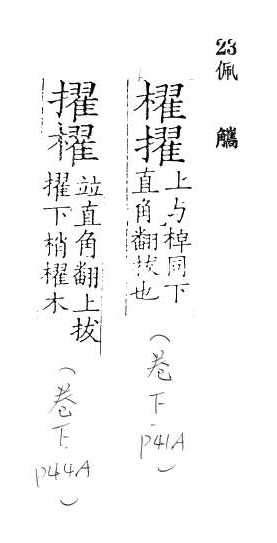 23
佩觿
櫂擢
上与棹同下
直角翻拔也
(卷下 P41A)
擢櫂
竝直角翻上拔
擢下梢櫂木
(卷下 P44A)